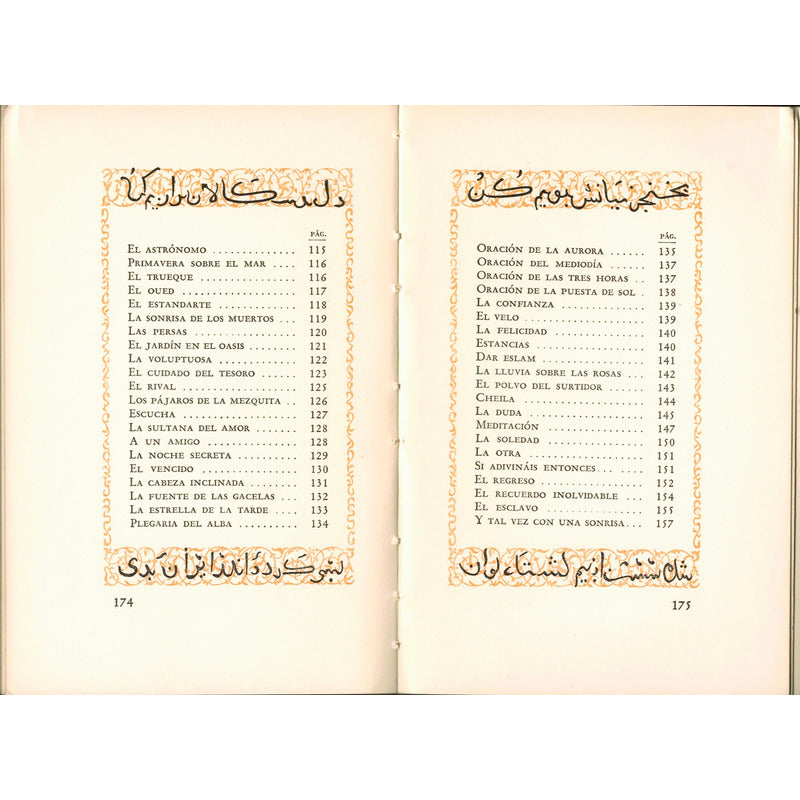 PÁG.
EL ASTRÓNOMO .............. 115
PRIMAVERA SOBRE EL MAR .... 116
EL TRUEQUE ................ 116
EL OUED ................... 117
EL ESTANDARTE ............. 118
LA SONRISA DE LOS MUERTOS .. 119
LAS PERSAS ................ 120
EL JARDÍN EN EL OASIS ...... 121
LA VOLUPTUOSA ............. 122
EL CUIDADO DEL TESORO ..... 123
EL RIVAL .................. 125
LOS PÁJAROS DE LA MEZQUITA .. 126
ESCUCHA ................... 127
LA SULTANA DEL AMOR ....... 128
A UN AMIGO ................ 128
LA NOCHE SECRETA .......... 129
EL VENCIDO ................ 130
LA CABEZA INCLINADA ....... 131
LA FUENTE DE LAS GACELAS ... 132
LA ESTRELLA DE LA TARDE .... 133
PLEGARIA DEL ALBA .......... 134
174
PÁG.
ORACIÓN DE LA AURORA ...... 135
ORACIÓN DEL MEDIODÍA ...... 137
ORACIÓN DE LAS TRES HORAS .. 137
ORACIÓN DE LA PUESTA DE SOL . 138
LA CONFIANZA .............. 139
EL VELO ................... 139
LA FELICIDAD .............. 140
ESTANCIAS ................. 140
DAR ESLAM ................. 141
LA LLUVIA SOBRE LAS ROSAS ... 142
EL POLVO DEL SURTIDOR ..... 143
CHEILA .................... 144
LA DUDA ................... 145
MEDITACIÓN ................ 147
LA SOLEDAD ................ 150
LA OTRA ................... 151
SI ADIVINÁIS ENTONCES... .... 151
EL REGRESO ................ 152
EL RECUERDO INOLVIDABLE ... 154
EL ESCLAVO ................ 155
Y TAL VEZ CON UNA SONRISA... 157
175